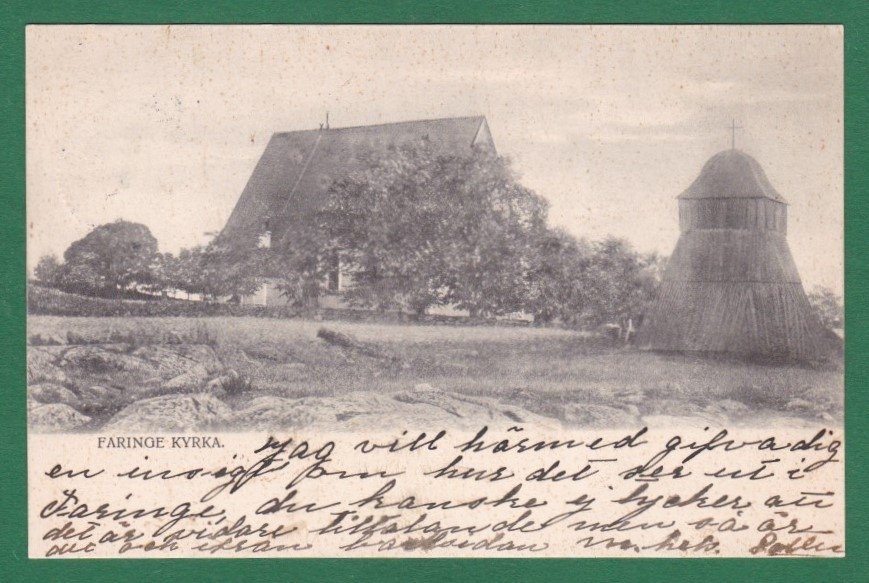 FARINGE KYRKA.
Jag vill härmed gifva dig
en insigt om hur det ser ut i
Faringe, du kanske ej tycker att
det är vidare tilltalande men så är
det och